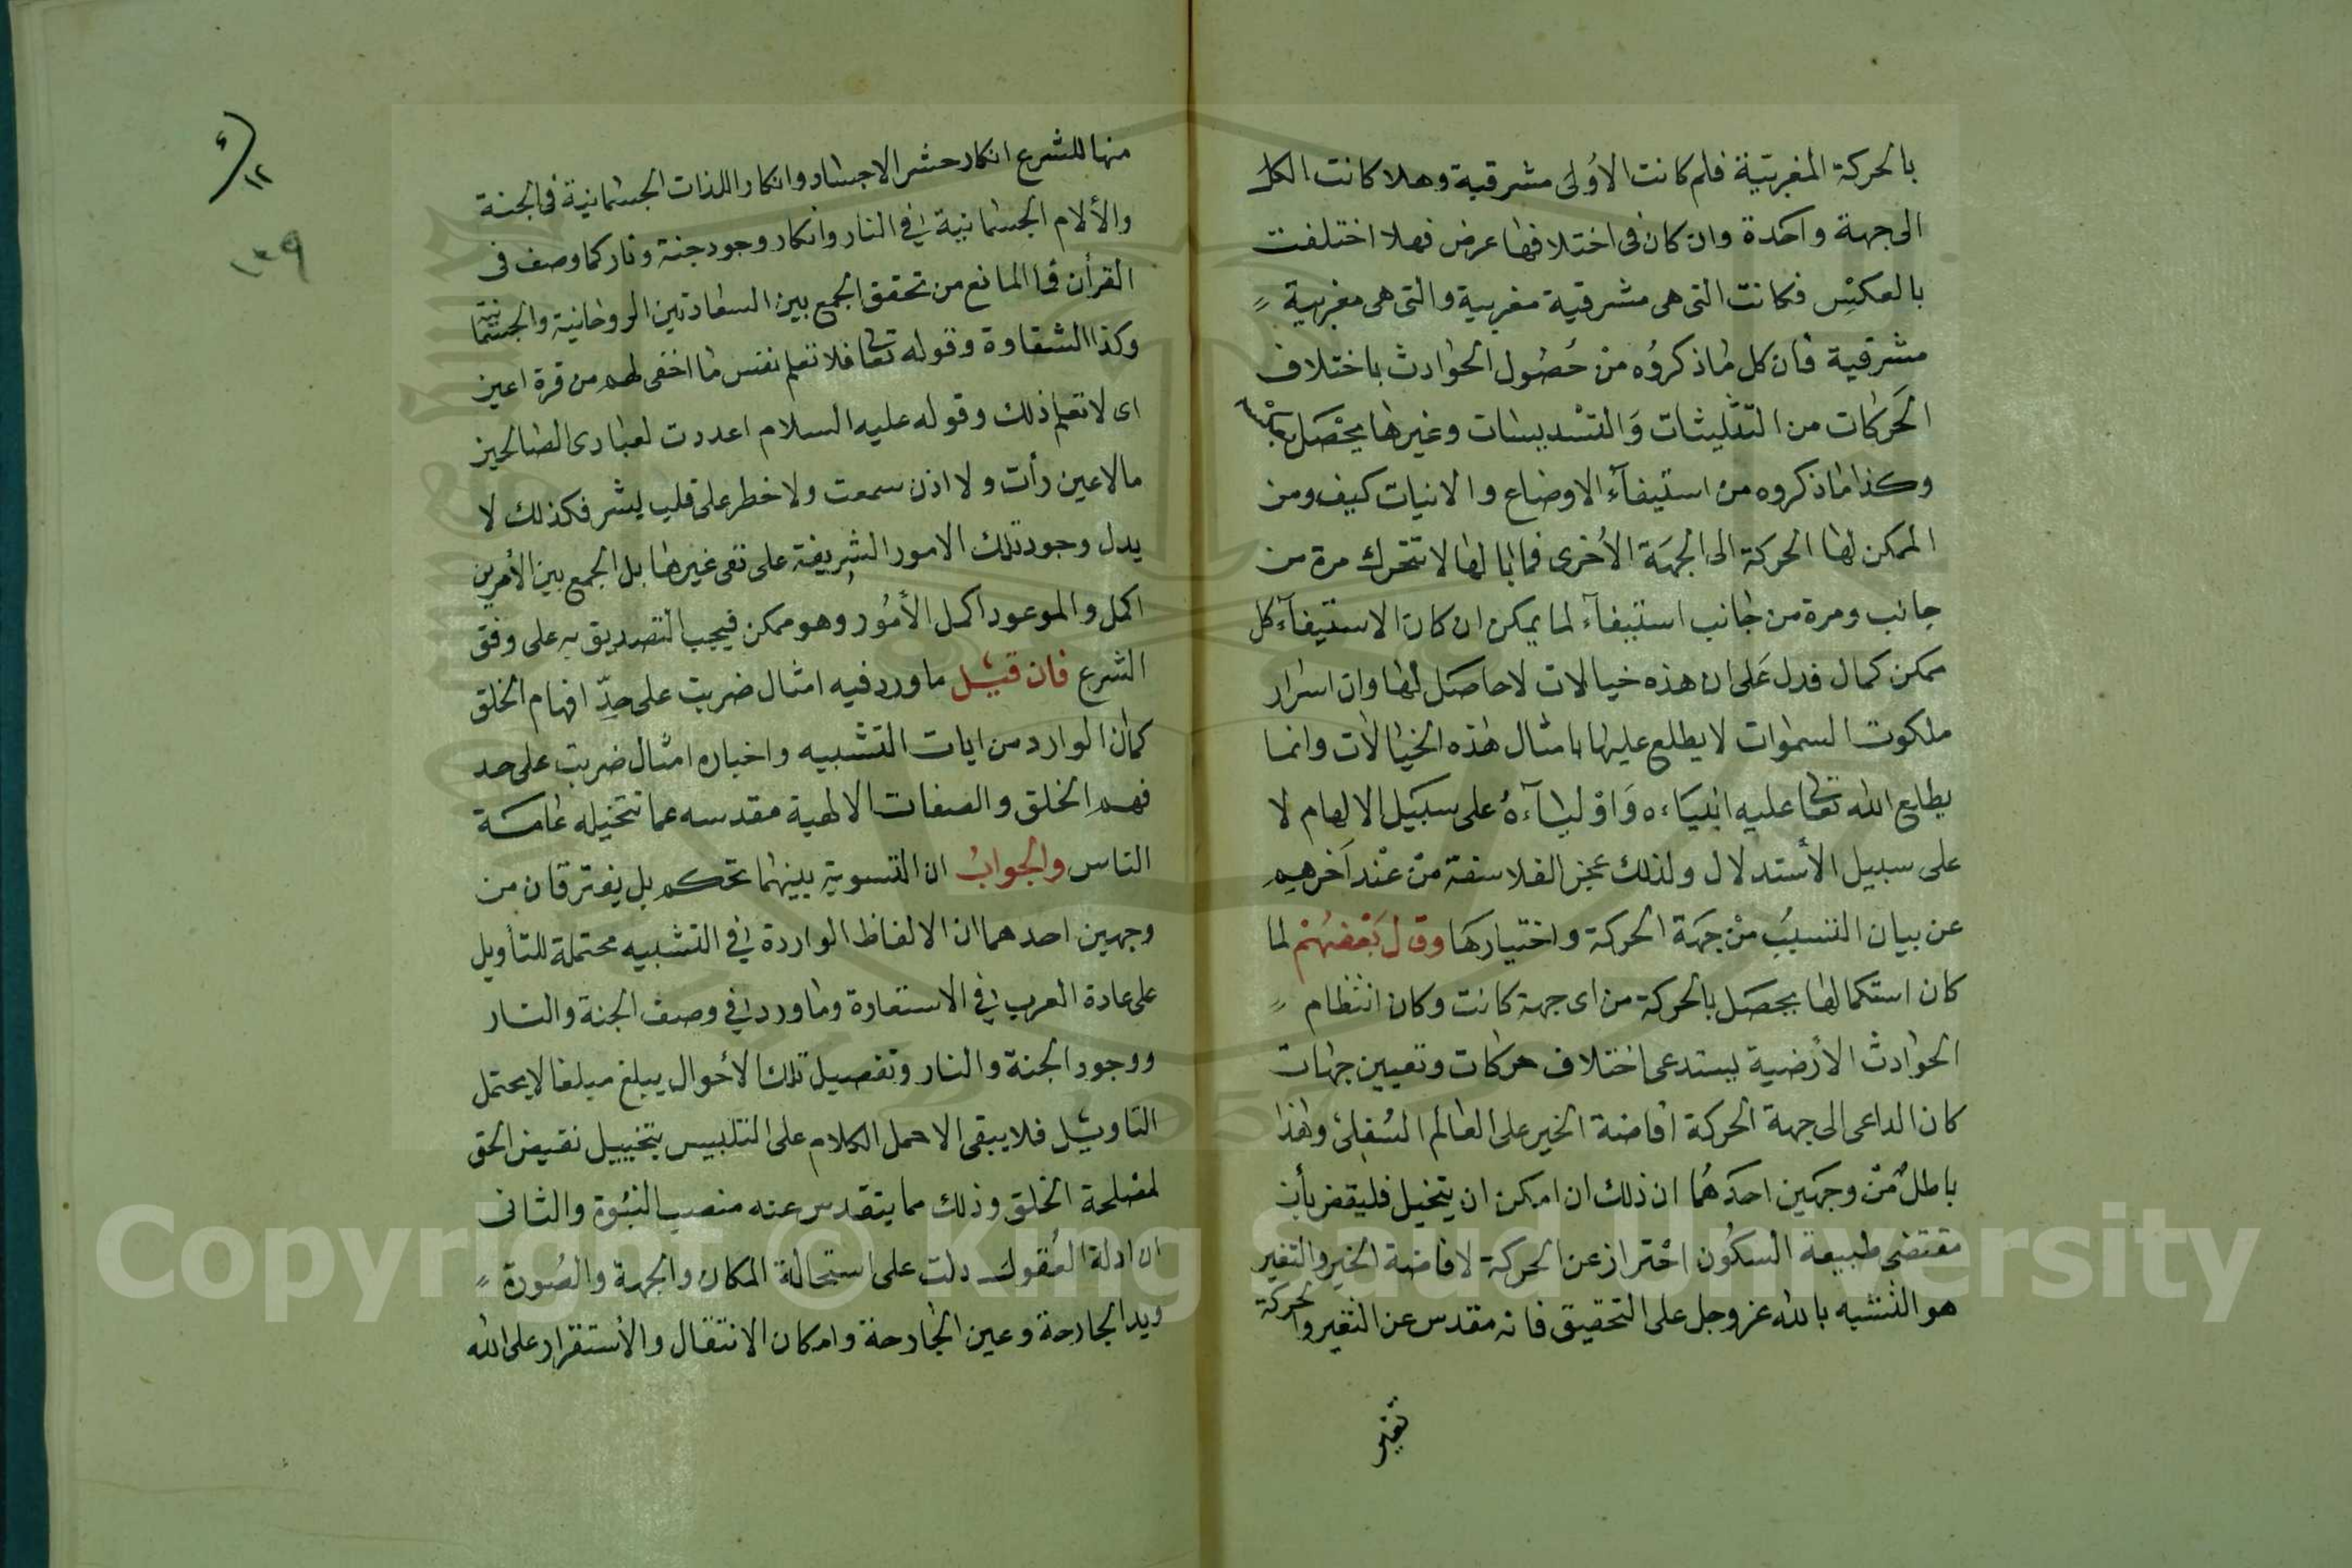 بالحركة المغربية فلم كانت الاُولى مشرقية وهلا كانت الكل
الى جهة واحدة وان كان فى اختلافها عرض فهلا اختلفت
بالعكس فكانت التى هى مشرقية مغربية والتى هى مغربية
مشرقية فان كل ما ذكروُه من حُصُول الحوادث باختلاف
الحَركات من التثليثات وَالتسْديسات وغيرها يحْصَل بعكسه
وكذا ما ذكروه من استيفآء الاوضاع والانيات كيف ومن
الممكن لها الحركة الى الجهَة الاُخرى فما بالها لا تتحرك مرة من
جانب ومرة من جانب استيفآء لما يمكن ان كان الاستيفآء كل
ممكن كمال فدل عَلى ان هذه خيالات لا حاصَل لها وان اسرار
ملكوت السموات لا يطلع عليها بامثال هذه الخيالات وانما
يطلع الله تعالى عليه انبيَاءه وَاوْليآءهُ على سبَيل الالهام لا
على سبيل الأستدلال ولذلك عجز الفلاسفة منْ عنْد اَخرهم
عن بيان السبب منْ جهَة الحركة واختيارهَا وقال بَعْضهُمْ لما
كان استكمالها يحصَل بالحركة من اى جهة كانت وكان انتظام
الحوادث الأرضية يستدعى اختلاف حركات وتعيين جهات
كان الداعى الى جهة الحركة افاضة الخير على العالم السُفلى وهذا
باطلٌ منْ وجهَين احدَهُما ان ذلك ان امكن ان يتخيل فليقض بأن
مقتضى طبيعة السكُون احْتراز عن الحركة لافاضة الخير والتغير
هو التشبه بالله عز وجل على التحقيق فانه مقدس عن التغير والحركة
تغير
منها للشرع انكار حشر الاجساد وانكار اللذات الجسمانية فى الجنة
والألام الجسمانية فى النار وانكار وجود جنة ونار كما وصف فى
القرأن فما المانع من تحقق الجمع بين السعادتين الروحانية والجسمانية
وكذا الشقاوة وقوله تعالى فلا تعلم نفس ما اخفى لهم من قرة اعين
اى لا تعلم ذلك وقوله عليه السلام اعددت لعبادى الصالحين
مالا عين رأت ولا اذن سمعت ولا خطر على قلب بشر فكذلك لا
يدل وجود تلك الامور الشريفة على نفى غيرها بل الجمع بين الأمرين
اكمل والموعود اكمل الأمُور وهو ممكن فيجب التصديق به على وفق
الشرع فان قيل ما ورد فيه امثال ضربت على حدّ افهام الخلق
كما ان الوارد من ايات التشبيه واخباره امثال ضربت على حد
فهم الخلق والصفات الالهية مقدسه عما تتخيله عامة
الناس والجواب ان التسوية بينهما تحكم بل يفترقان من
وجهين احدهما ان الالفاظ الواردة فى التشبيه محتملة للتأويل
على عادة العرب فى الاستعارة وما ورد فى وصف الجنة والنار
ووجود الجنة والنار وتفصيل تلك الأحوال يبلغ مبلغا لا يحتمل
التاويل فلا يبقى الا حمل الكلام على التلبيس بتخييل نقيض الحق
لمصلحة الخلق وذلك مما يتقدس عنه منصب النبُوة والثانى
ان ادلة العُقول دلت على استحالة المكان والجهة والصُورة
ويد الجارحة وعين الجارحة وامكان الانتقال والأستقرار على الله
١٢
١٣٩
Copyright © King Saud University
1957